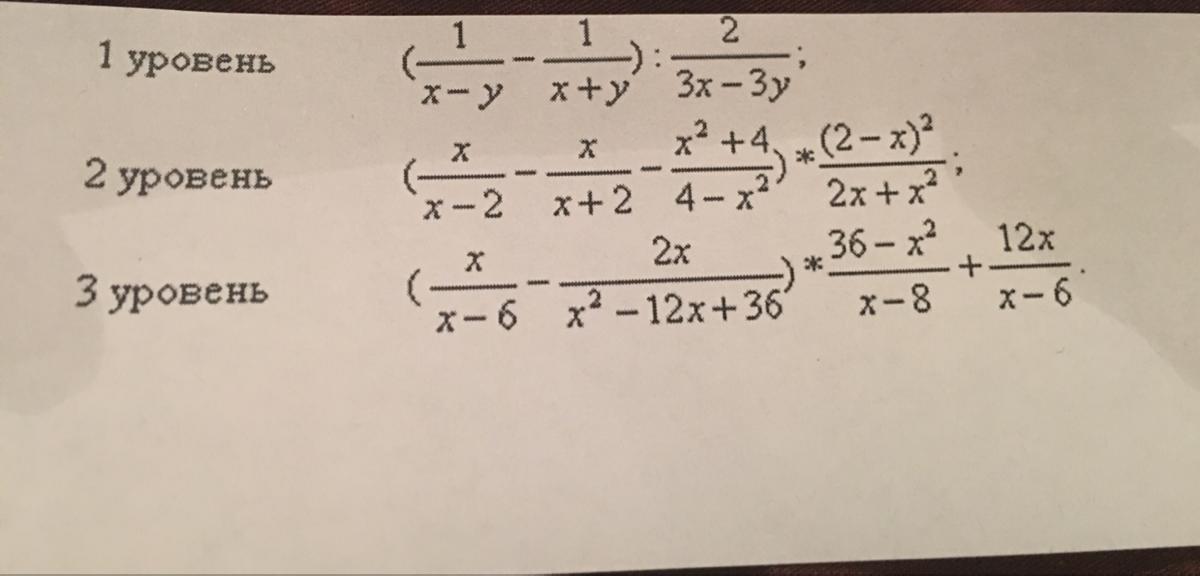 1 уровень (1/(x − y) − 1/(x + y)) : 2/(3x − 3y);
2 уровень (x/(x − 2) − x/(x + 2) − (x² + 4)/(4 − x²)) * (2 − x)²/(2x + x²);
3 уровень (x/(x − 6) − 2x/(x² − 12x + 36)) * (36 − x²)/(x − 8) + 12x/(x − 6).